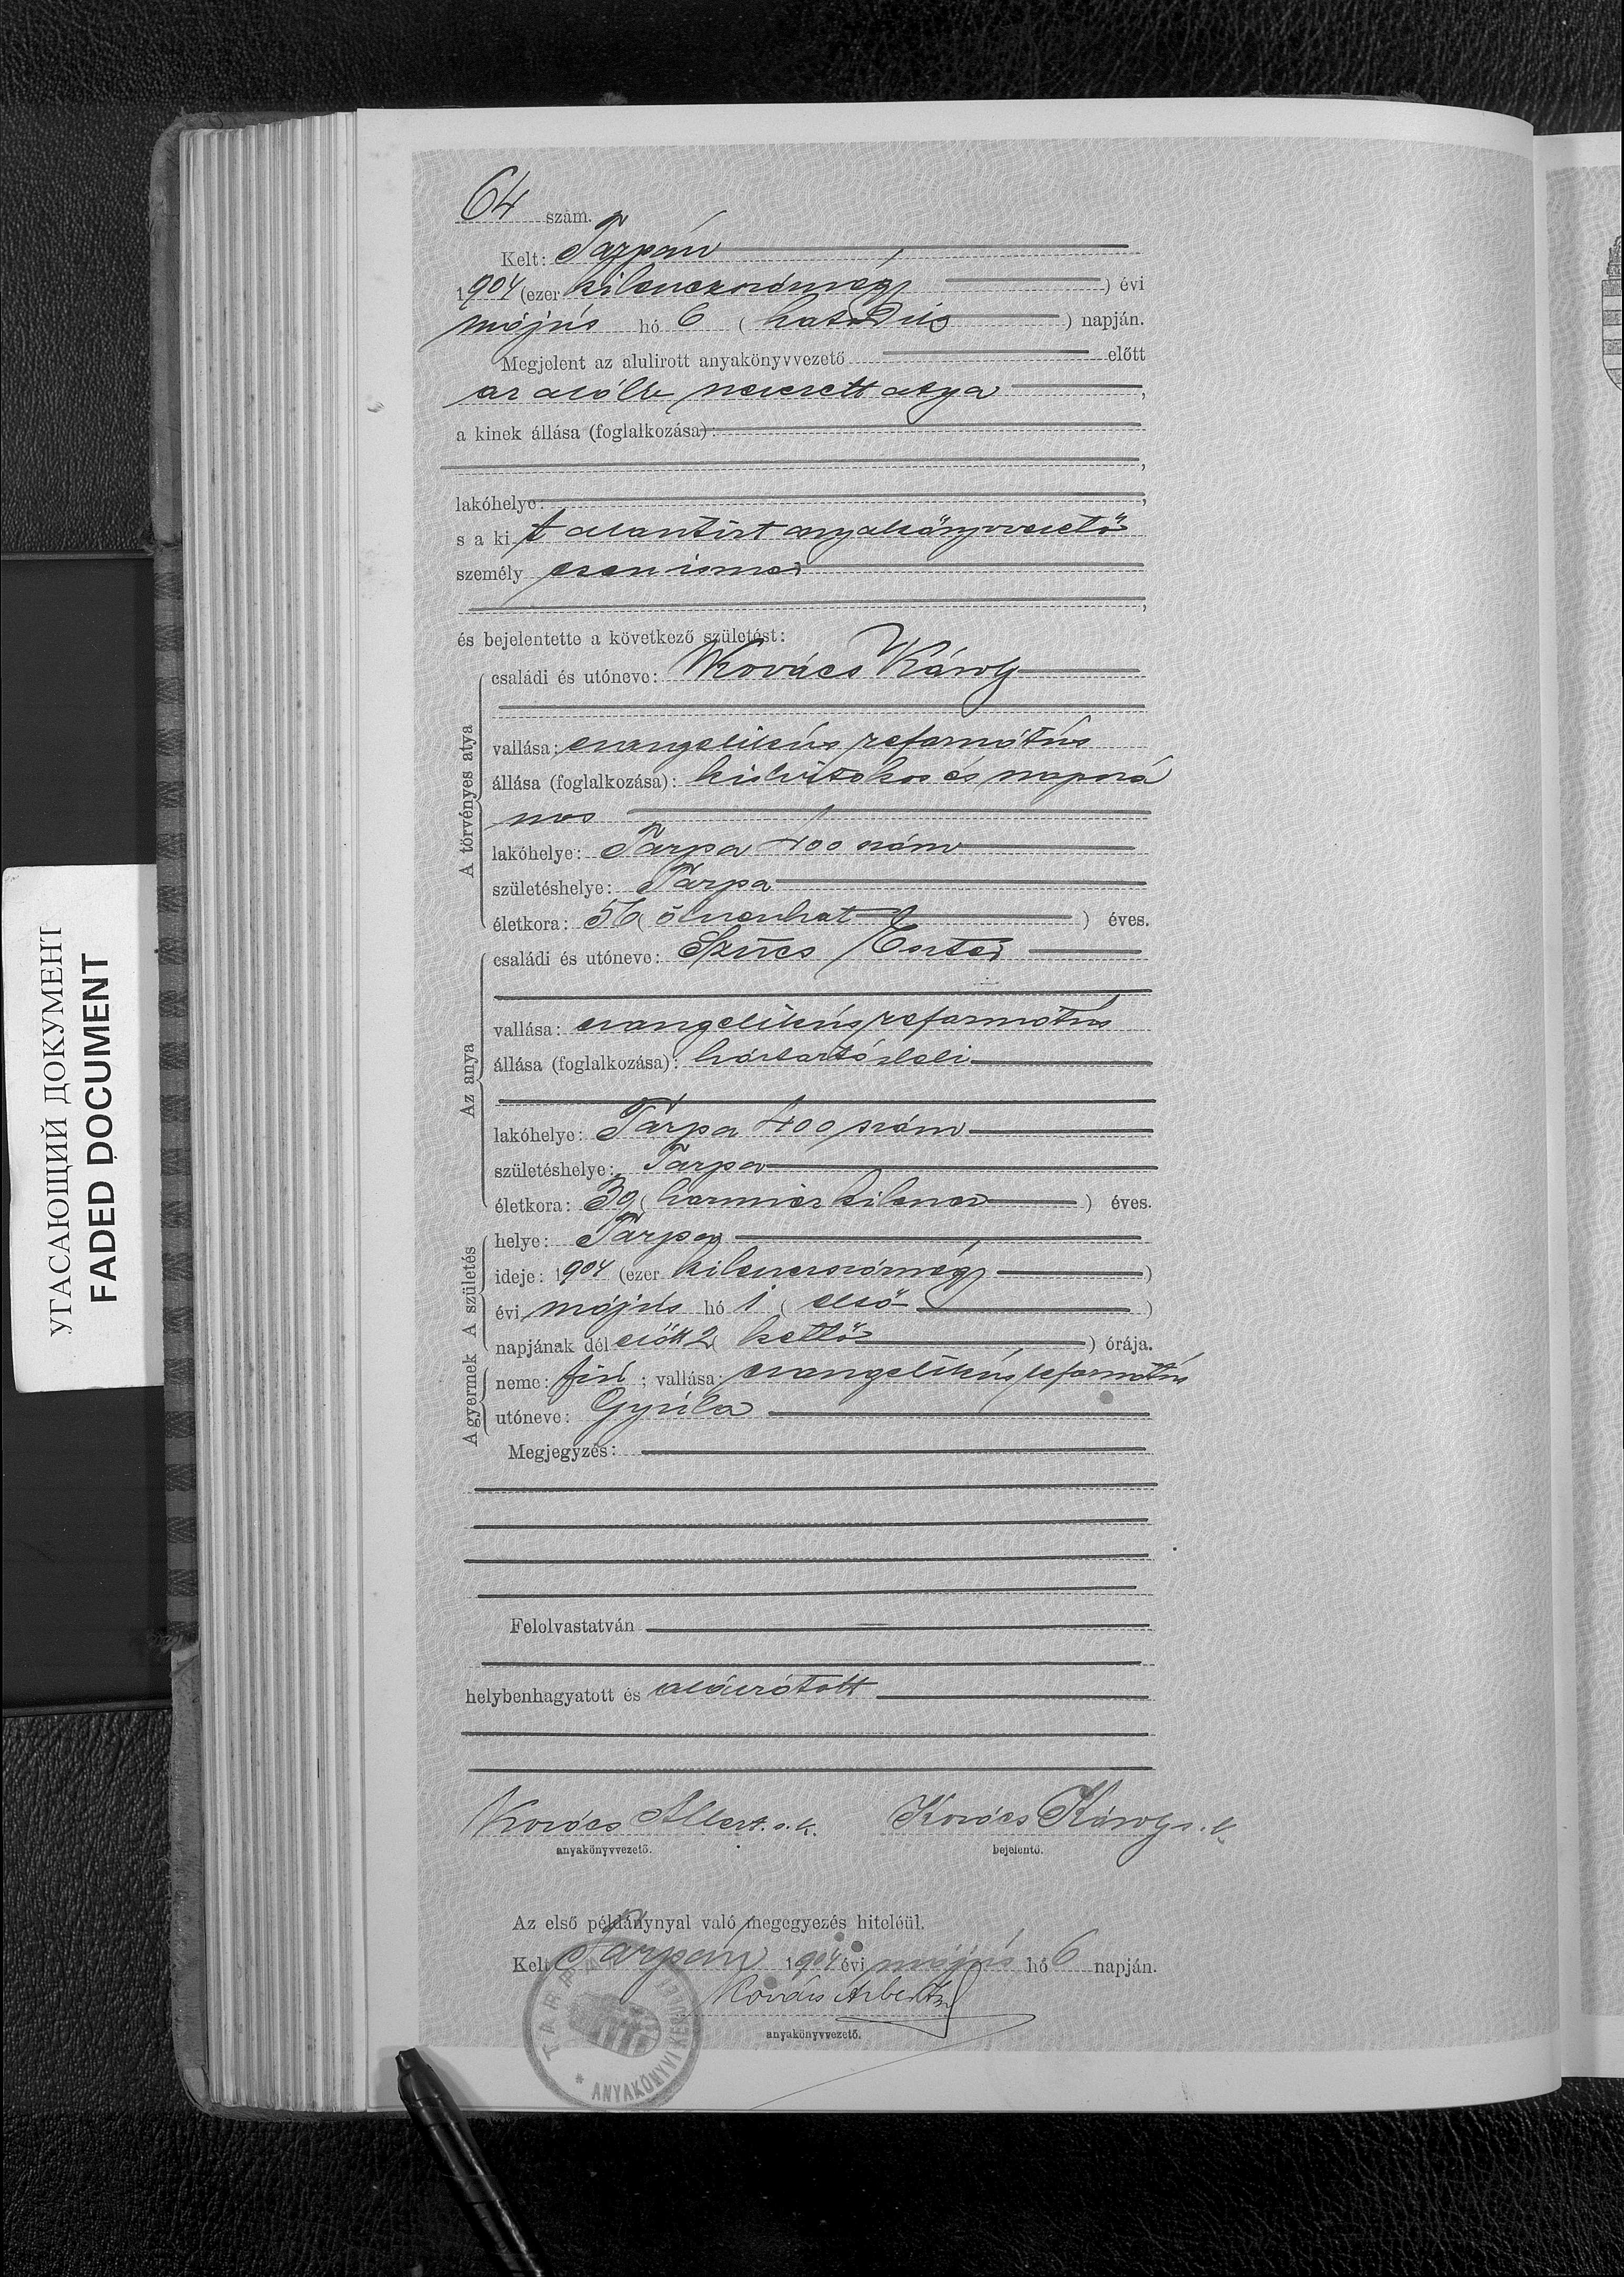 64 szám.
Kelt: Tarpán
1904 (ezer kilenczszáznégy ) évi
május hó 6 ( hatodik ) napján.
Megjelent az alulirott anyakönyvvezető előtt
az alább nevezett atya ,
a kinek állása (foglalkozása):
,
lakóhelye: ,
s a kit alantirt anyakönyvvezető
személyesen ismer
,
és bejelentette a következő születést:
A törvényes atya
családi és utóneve: Kovács Károly
vallása: evangelikus református
állása (foglalkozása): kisbirtokos és napszá
mos
lakóhelye: Tarpa 400 szám
születéshelye: Tarpa
életkora: 56 ( ötvenhat ) éves.
Az anya
családi és utóneve: Szűcs Eszter
vallása: evangelikus református
állása (foglalkozása): háztartásbeli
lakóhelye: Tarpa 400 szám
születéshelye: Tarpa
életkora: 39 ( harmincz kilencz ) éves.
A születés
helye: Tarpa
ideje: 1904 (ezer kilenczszáznégy )
évi május hó 1 ( első )
napjának délelőtt 2 ( kettő ) órája.
A gyermek
neme: fiú ; vallása: evangelikus református
utóneve: Gyula
Megjegyzés:
Felolvastatván
helybenhagyatott és aláíratott
Kovács Albert s. k. Kovács Károly s. k.
anyakönyvvezető. bejelentő.
Az első példánynyal való megegyezés hiteléül.
Kelt Tarpán 1904 évi május hó 6 napján.
Kovács Albert
anyakönyvvezető.
TARPA
* ANYAKÖNYVI KERÜLET
УГАСАЮЩИЙ ДОКУМЕНТ
FADED DOCUMENT